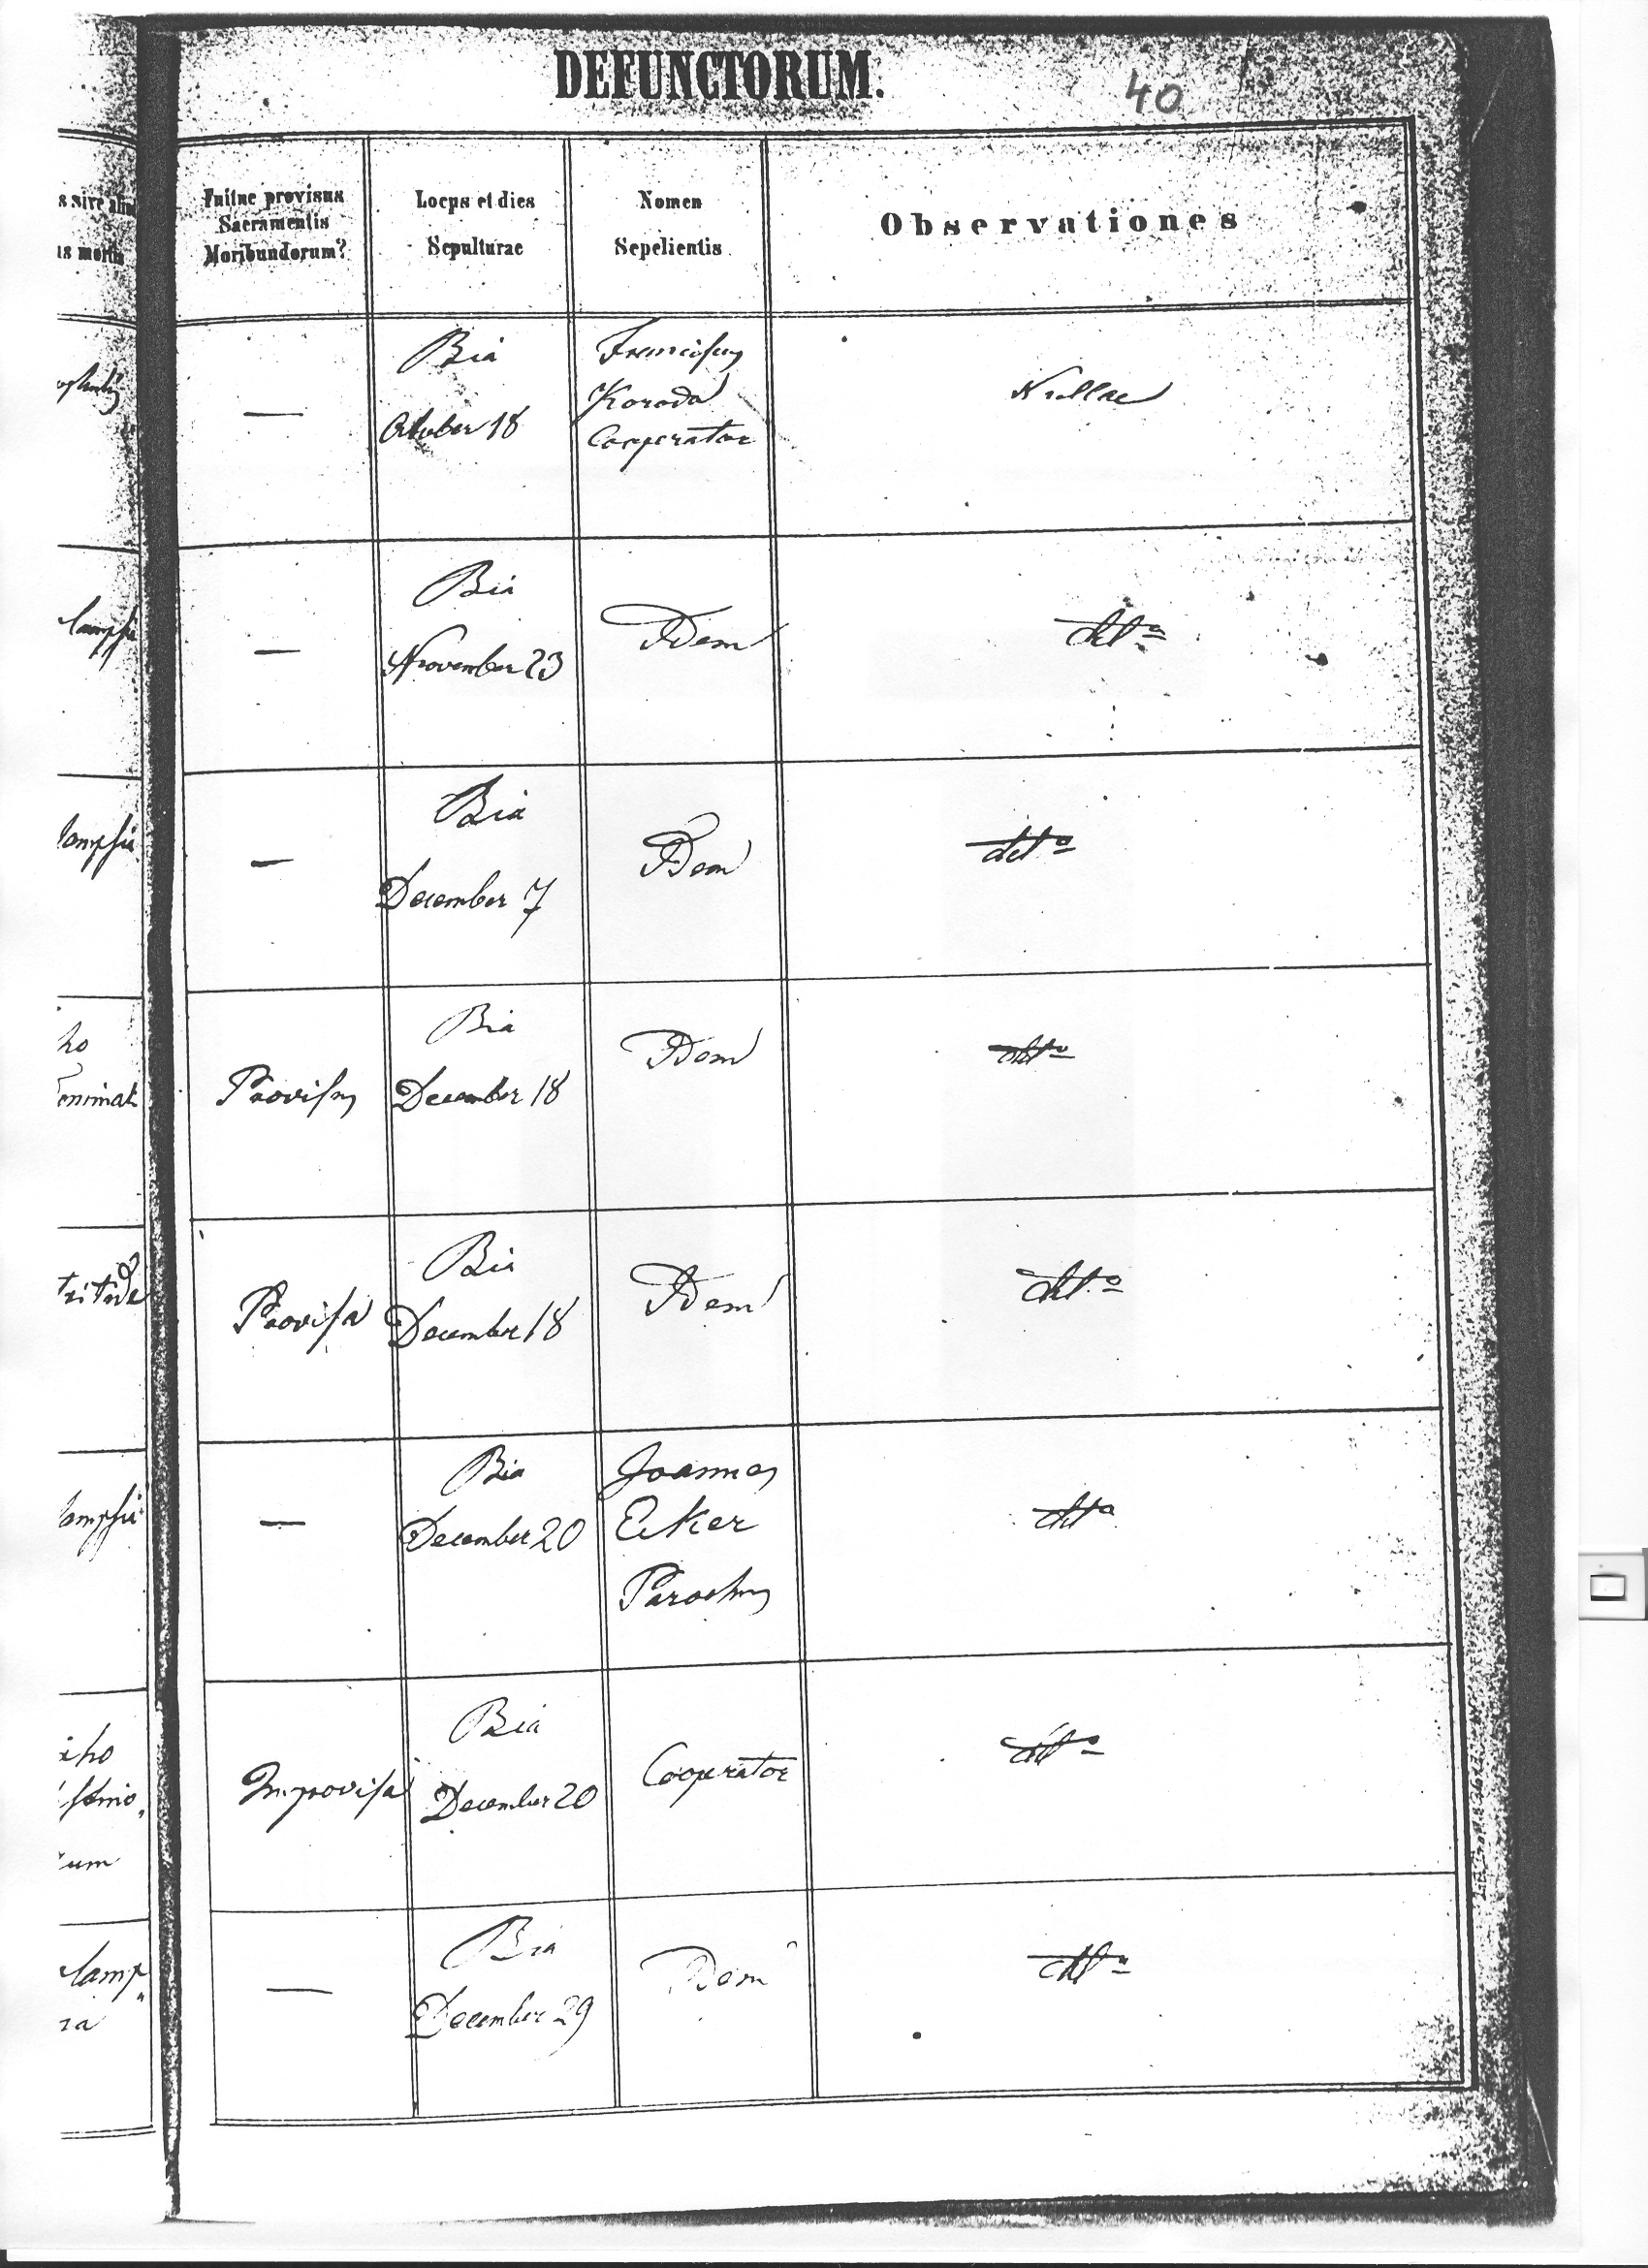 DEFUNCTORUM.
40
Fuitne provisus
Sacramentis
Moribundorum?
Locus et dies
Sepulturae
Nomen
Sepelientis
Observationes
—
Bia
October 18
Franciscus
Koroda
Cooperator
Nullae
—
Bia
November 23
Idem
dtto
—
Bia
December 7
Idem
dtto
Provisus
Bia
December 18
Idem
dtto
Provisa
Bia
December 18
Idem
dtto
—
Bia
December 20
Joannes
Eker
Parochus
dtto
Improvisa
Bia
December 20
Cooperator
dtto
—
Bia
December 29
Idem
dtto